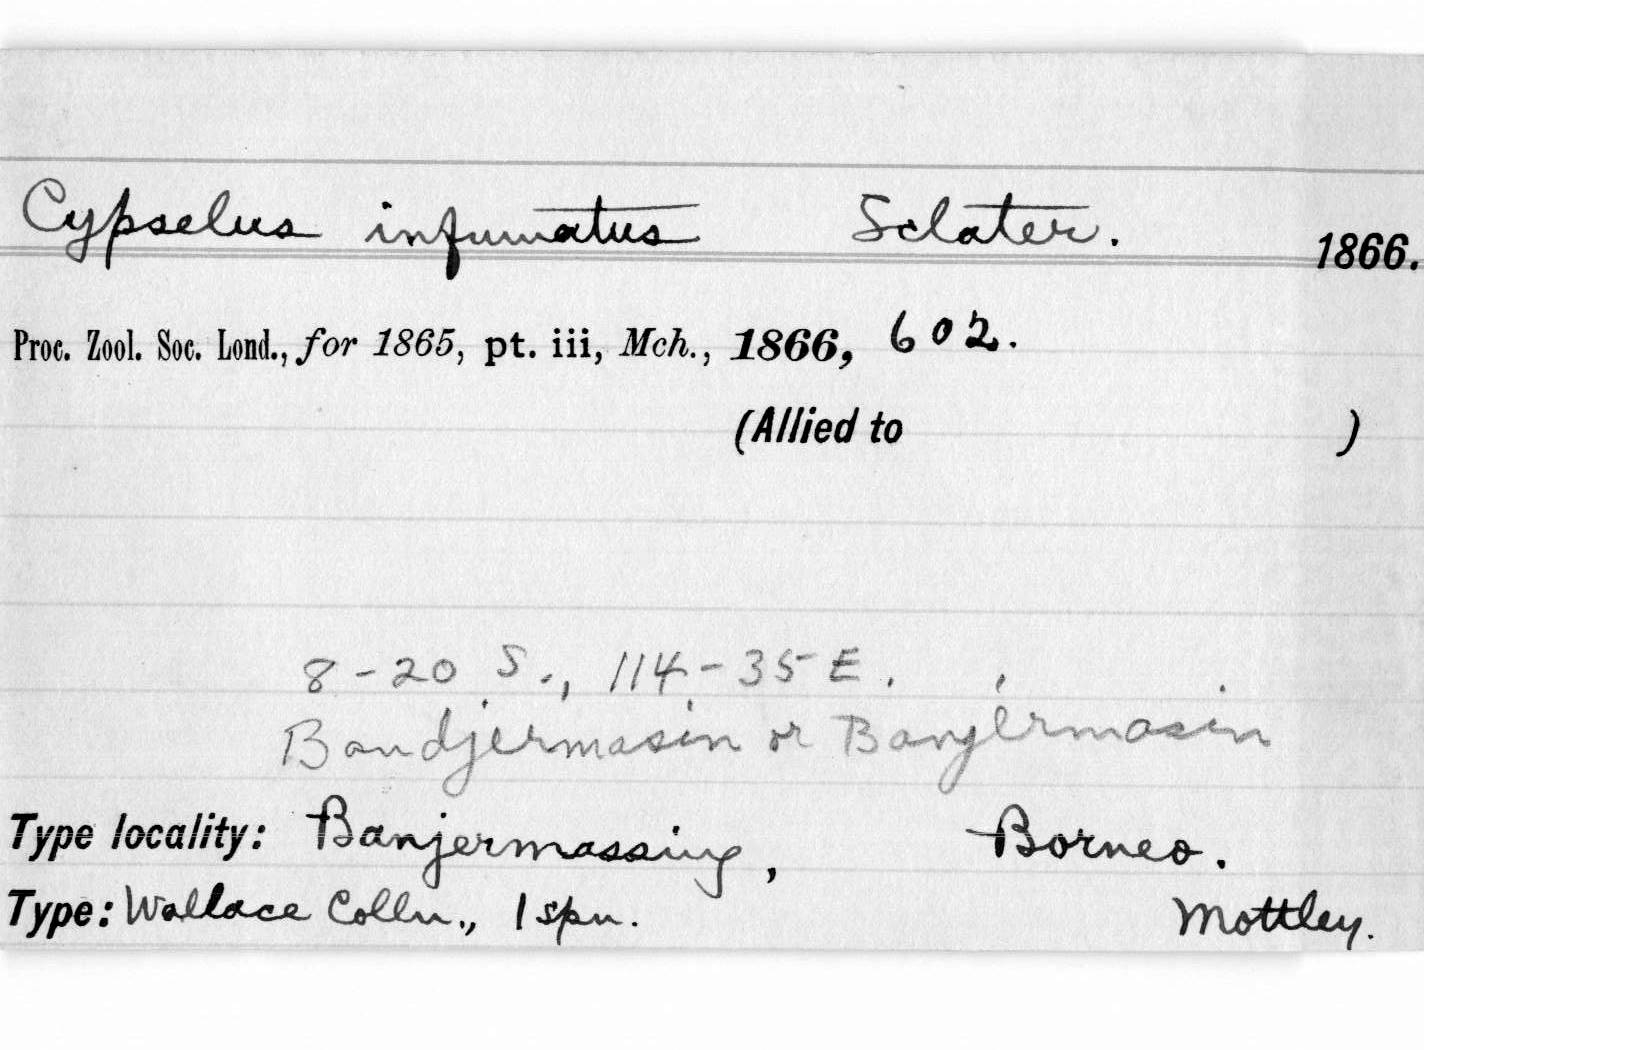 Cypselus infumatus Sclater. 1866.
Proc. Zool. Soc. Lond., for 1865, pt. iii, Mch., 1866, 602.
(Allied to )
8-20 S., 114-35 E.
Bandjermasin or Banjermasin
Type locality: Banjermassing, Borneo.
Type: Wallace Colln., 1 spn. Mottley.